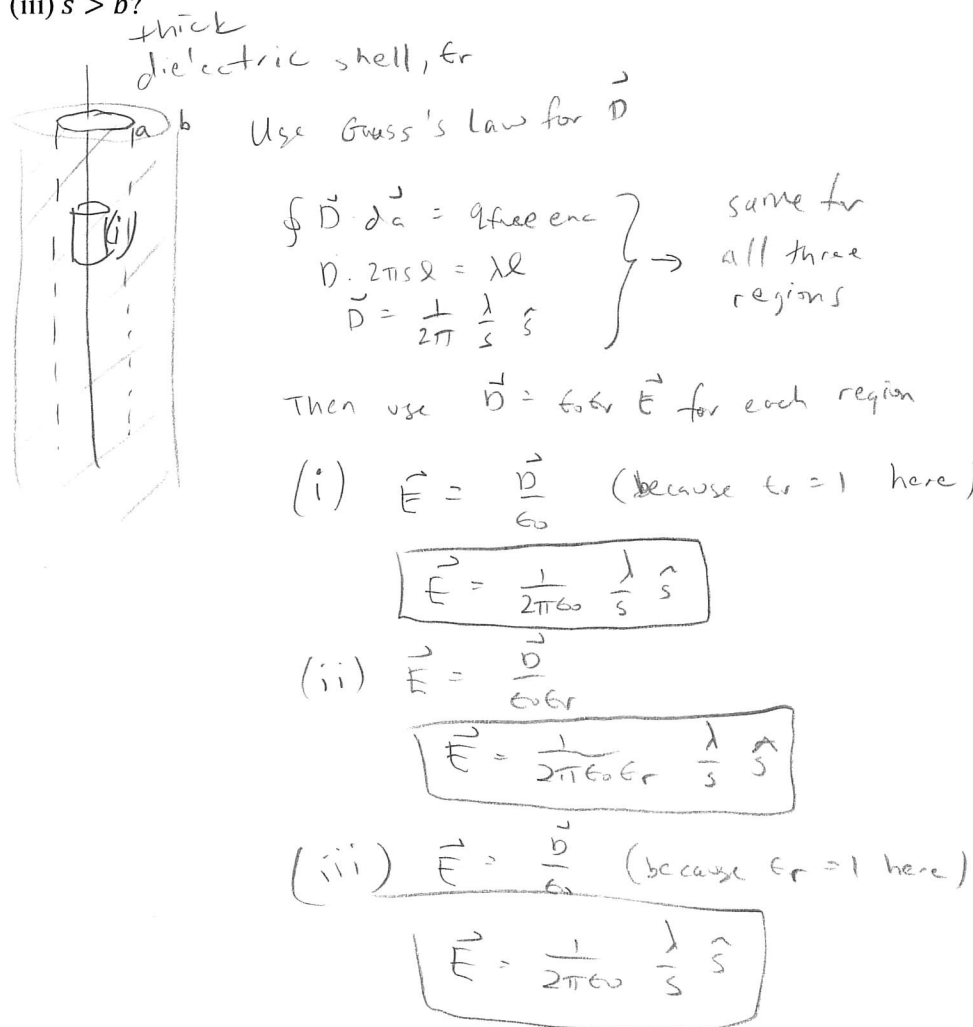 (iii) s > b?
thick
dielectric shell, εr
a b
Use Gauss's Law for D⃗
(i)
∮ D⃗ · da⃗ = qfree enc
D · 2πsl = λl
D⃗ = 1/2π λ/s ŝ
→ same for
all three
regions
Then use D⃗ = ε₀εr E⃗ for each region
(i) E⃗ = D⃗/ε₀ (because εr = 1 here)
E⃗ = 1/2πε₀ λ/s ŝ
(ii) E⃗ = D⃗/ε₀εr
E⃗ = 1/2πε₀εr λ/s ŝ
(iii) E⃗ = D⃗/ε₀ (because εr = 1 here)
E⃗ = 1/2πε₀ λ/s ŝ